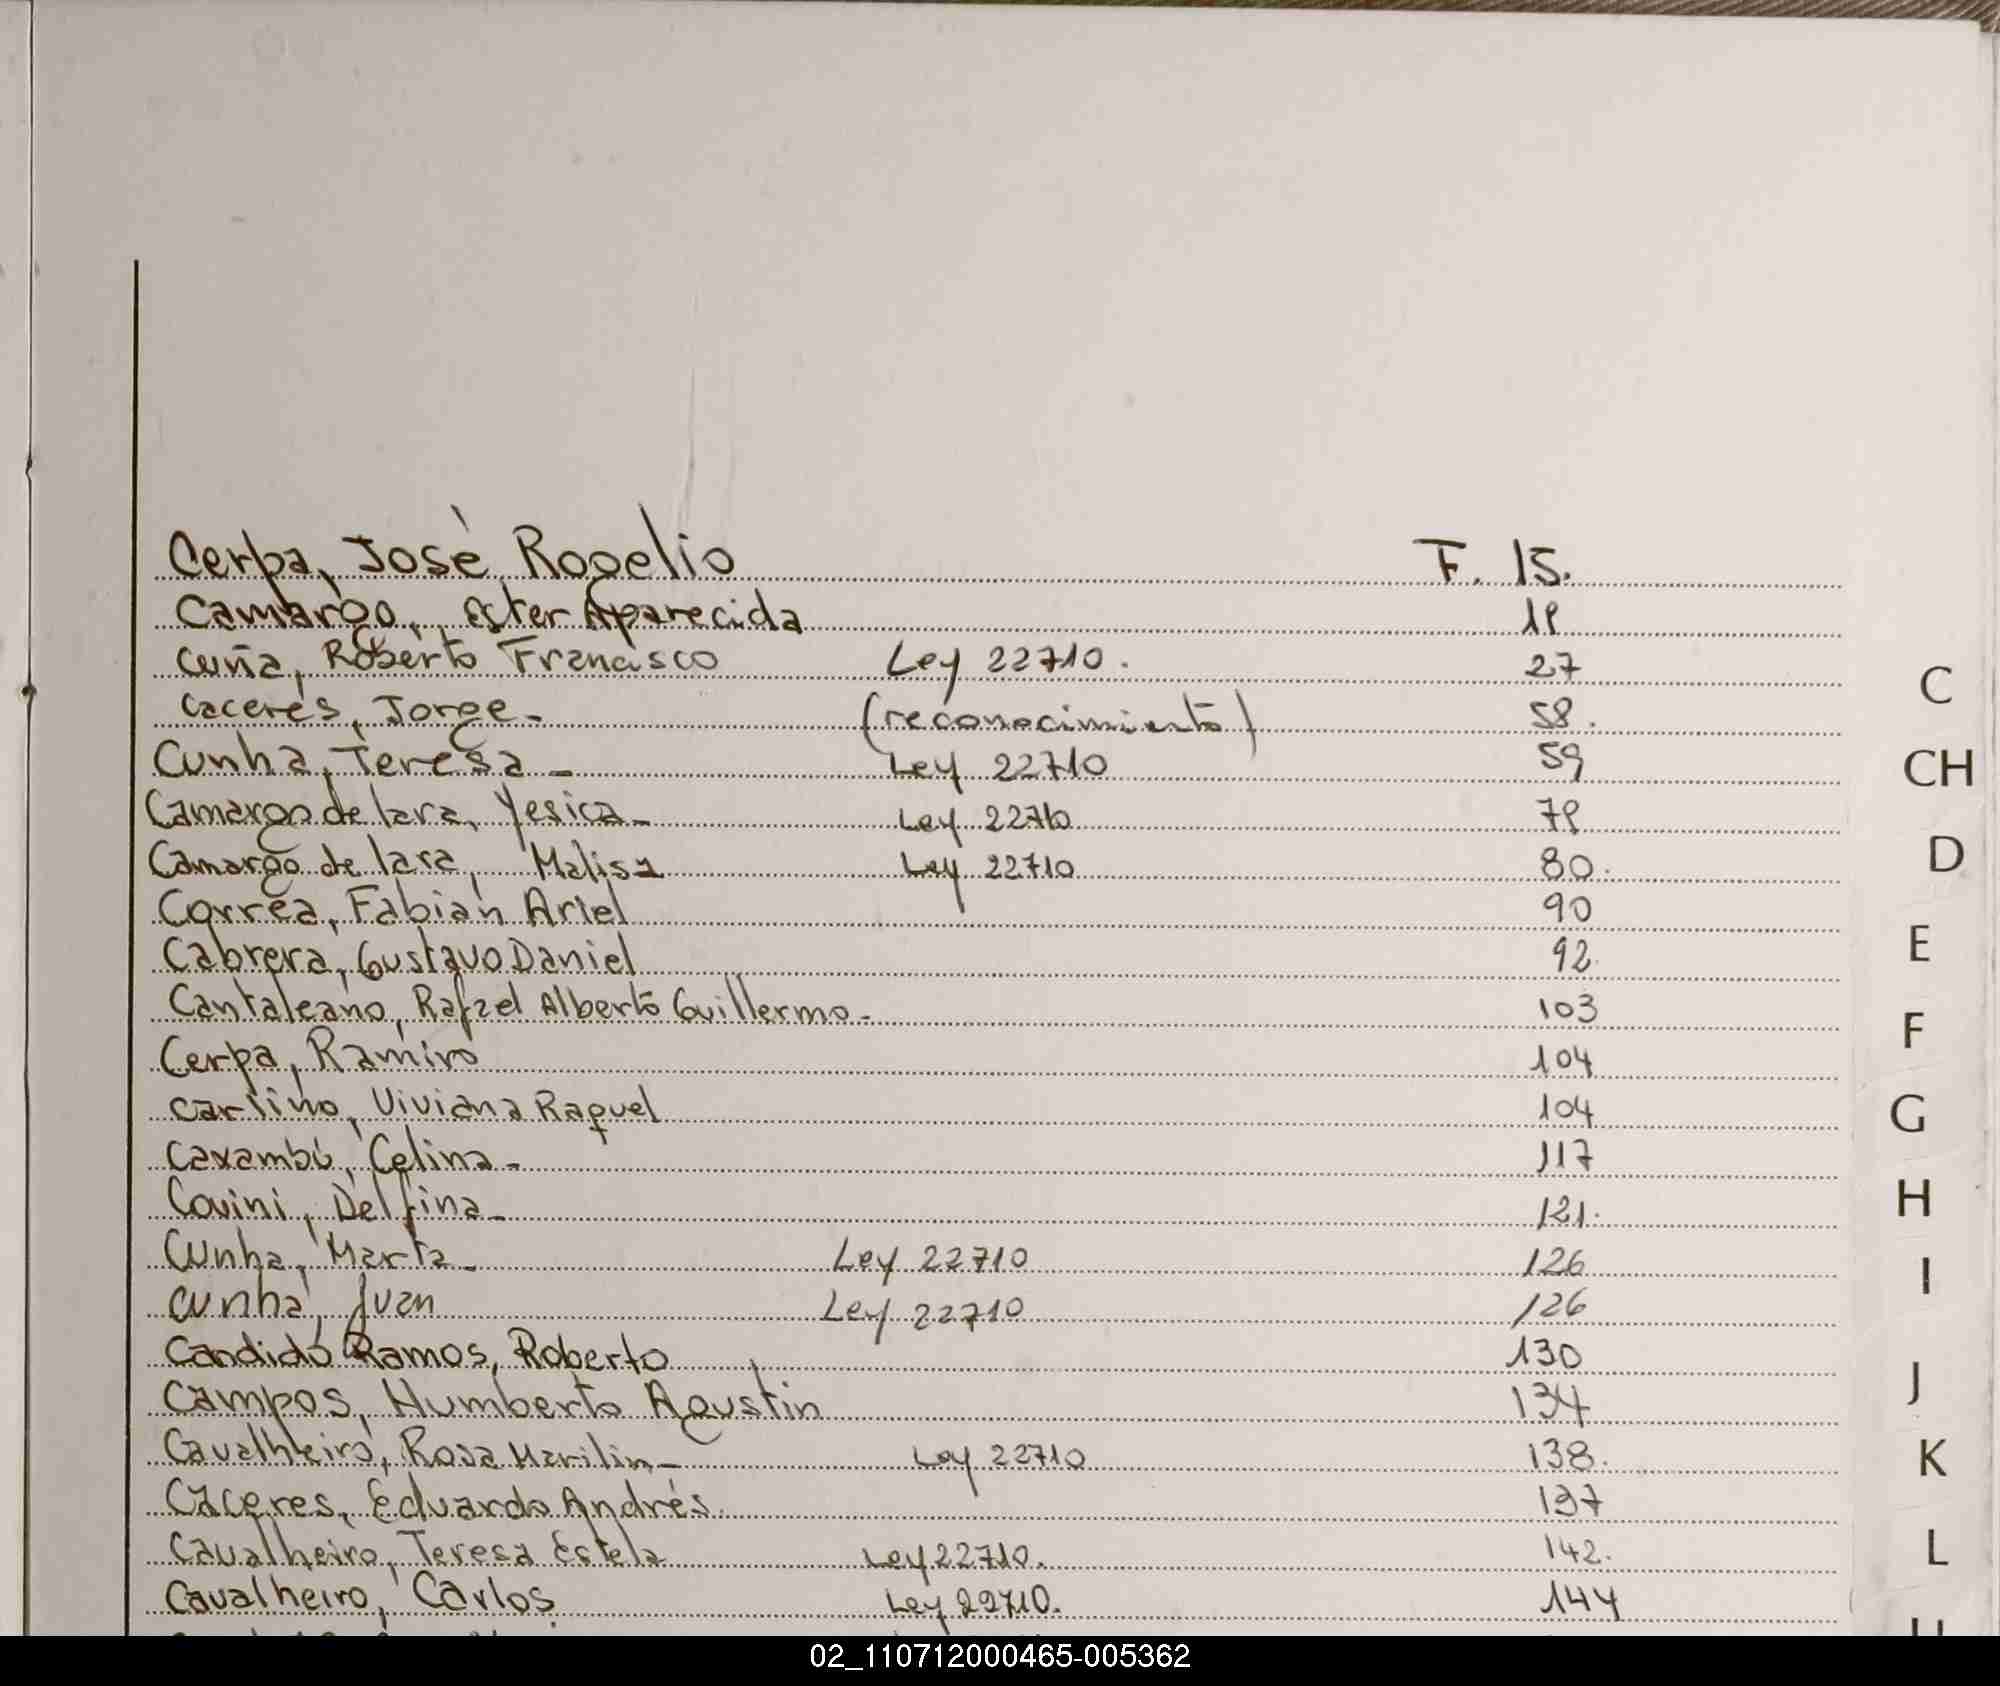 Cerpa, José Rogelio F. 15.
Camargo, Ester Aparecida 18
Cuña, Roberto Francisco Ley 22710. 27
Caceres, Jorge - (reconocimiento) 58.
Cunha, Teresa - Ley 22710 59
Camargo de lara, Yesica - Ley 22710 78
Camargo de lara, Malisa Ley 22710 80.
Correa, Fabián Ariel 90
Cabrera, Gustavo Daniel 92.
Cantaleano, Rafael Alberto Guillermo - 103
Cerpa, Ramiro 104
Carlino, Viviana Raquel 104
Caxambú, Celina - 117
Covini, Delfina - 121.
Cunha, Marta - Ley 22710 126
Cunha, Juan Ley 22710 126
Candido Ramos, Roberto 130
Campos, Humberto Agustín 134
Cavalheiro, Rosa Marilin - Ley 22710 138.
Cáceres, Eduardo Andrés. 137
Cavalheiro, Teresa Estela Ley 22710. 142.
Cavalheiro, Carlos Ley 22710. 144
C
CH
D
E
F
G
H
I
J
K
L
02_110712000465-005362